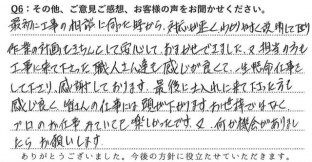 Q6：その他、ご意見ご感想、お客様の声をお聞かせください。
最初に工事の相談に伺った時から、対応が良く分りやすく説明して下さり
作業の計画もきちんとして安心しておまかせできました。又担当の方も
工事に来て下さった職人さん達も感じが良くて、一生懸命仕事を
して下さり、感謝しております。最後に入れに来て下さった方も
感じ良く、皆さんの仕事には頭が下がります。お世辞ではなく
プロのお仕事みていても楽しかったです。又、何か機会がありまし
たらお願いします。
ありがとうございました。今後の方針に役立たせていただきます。